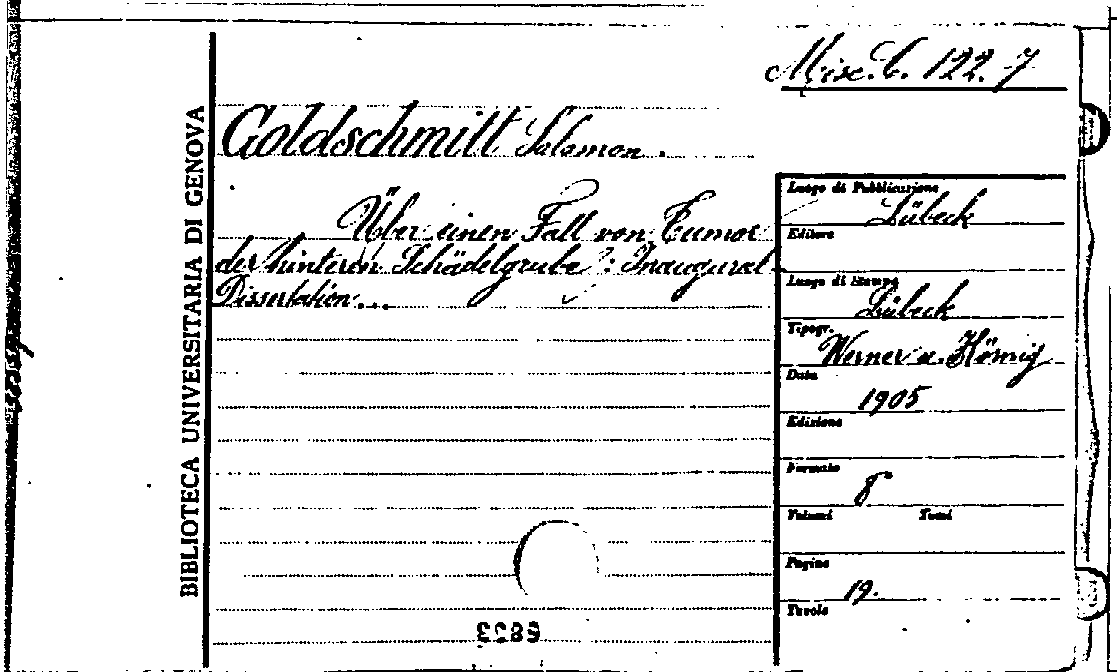 Misc. C. 122. 7
BIBLIOTECA UNIVERSITARIA DI GENOVA
Goldschmitt Salomon.
Über einen Fall von Tumor
der hinteren Schädelgrube: Inaugural
Dissertation...
Luogo di Pubblicazione
Lübeck
Editore
Luogo di Stampa
Lübeck
Tipogr.
Werner u. Hörnig
Data
1905
Edizione
Formato
8°
Volumi Tomi
Pagine
19.
Tavole